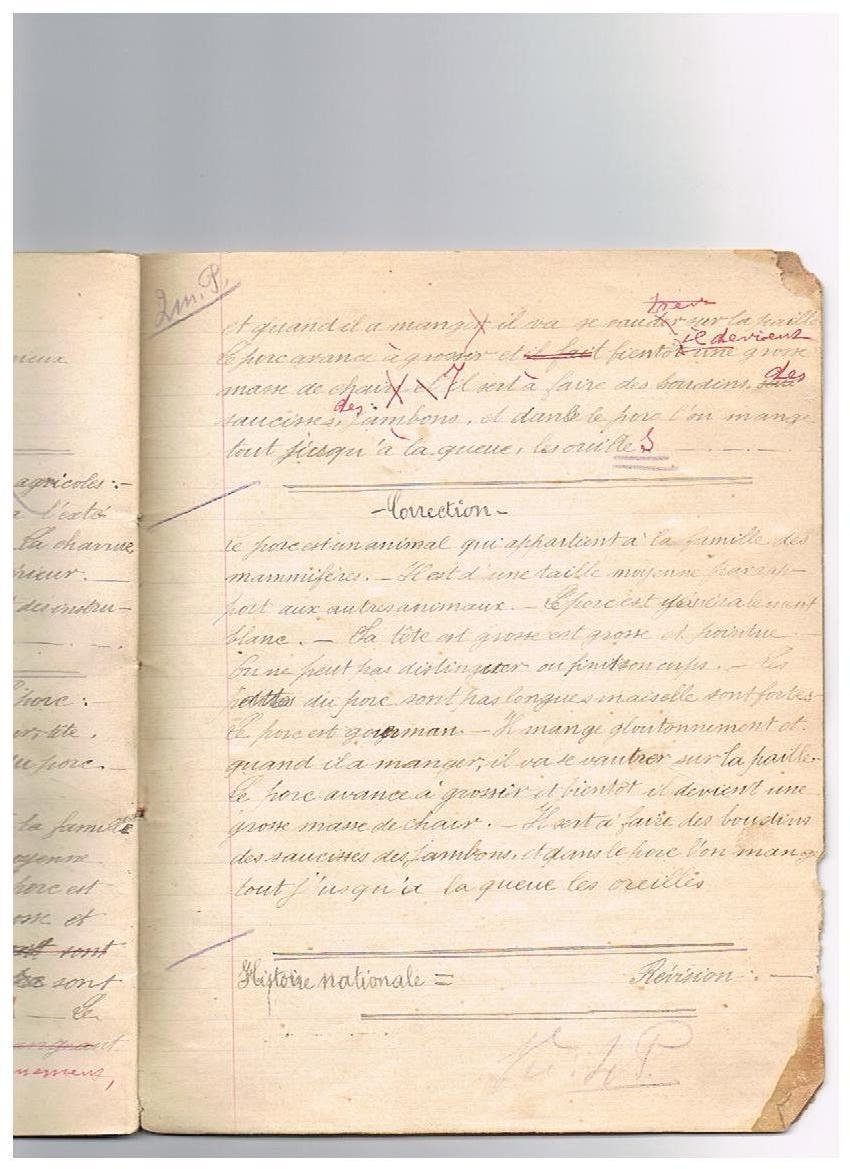 agricoles :-
a l'exté
La charrue
rieur. -
desinstru-
porc :-
tête.
du porc. -
la famille
oyenne
porc est
osse et
sont
sont
Le
2m. P.
et quand il a manger il va se vauder sur la paille
trer
Le porc avance à grossir et il fait bientôt une grosse
il devient
masse de chair et il sert à faire des boudins,
des
saucisses, jambons, et dans le porc l'on mange
des
tout jusqu'à la queue, les oreilles
- Correction -
Le porc est un animal qui appartient à la famille des
mammifères. - Il est d'une taille moyenne par rap-
port aux autres animaux. - Le porc est généralement
blanc. - Sa tête est grosse est grosse et pointue -
On ne peut pas distinguer ou finit son corps. - Les
pattes du porc sont pas longues mais elle sont fortes
Le porc est gourman - Il mange gloutonnement et
quand il a manger, il va se vautrer sur la paille.
Le porc avance à grossir et bientôt il devient une
grosse masse de chair. - Il sert à faire des boudins
des saucisses des jambons. et dans le porc l'on mange
tout j'usqu'a la queue les oreilles
Histoire nationale = Révision :-